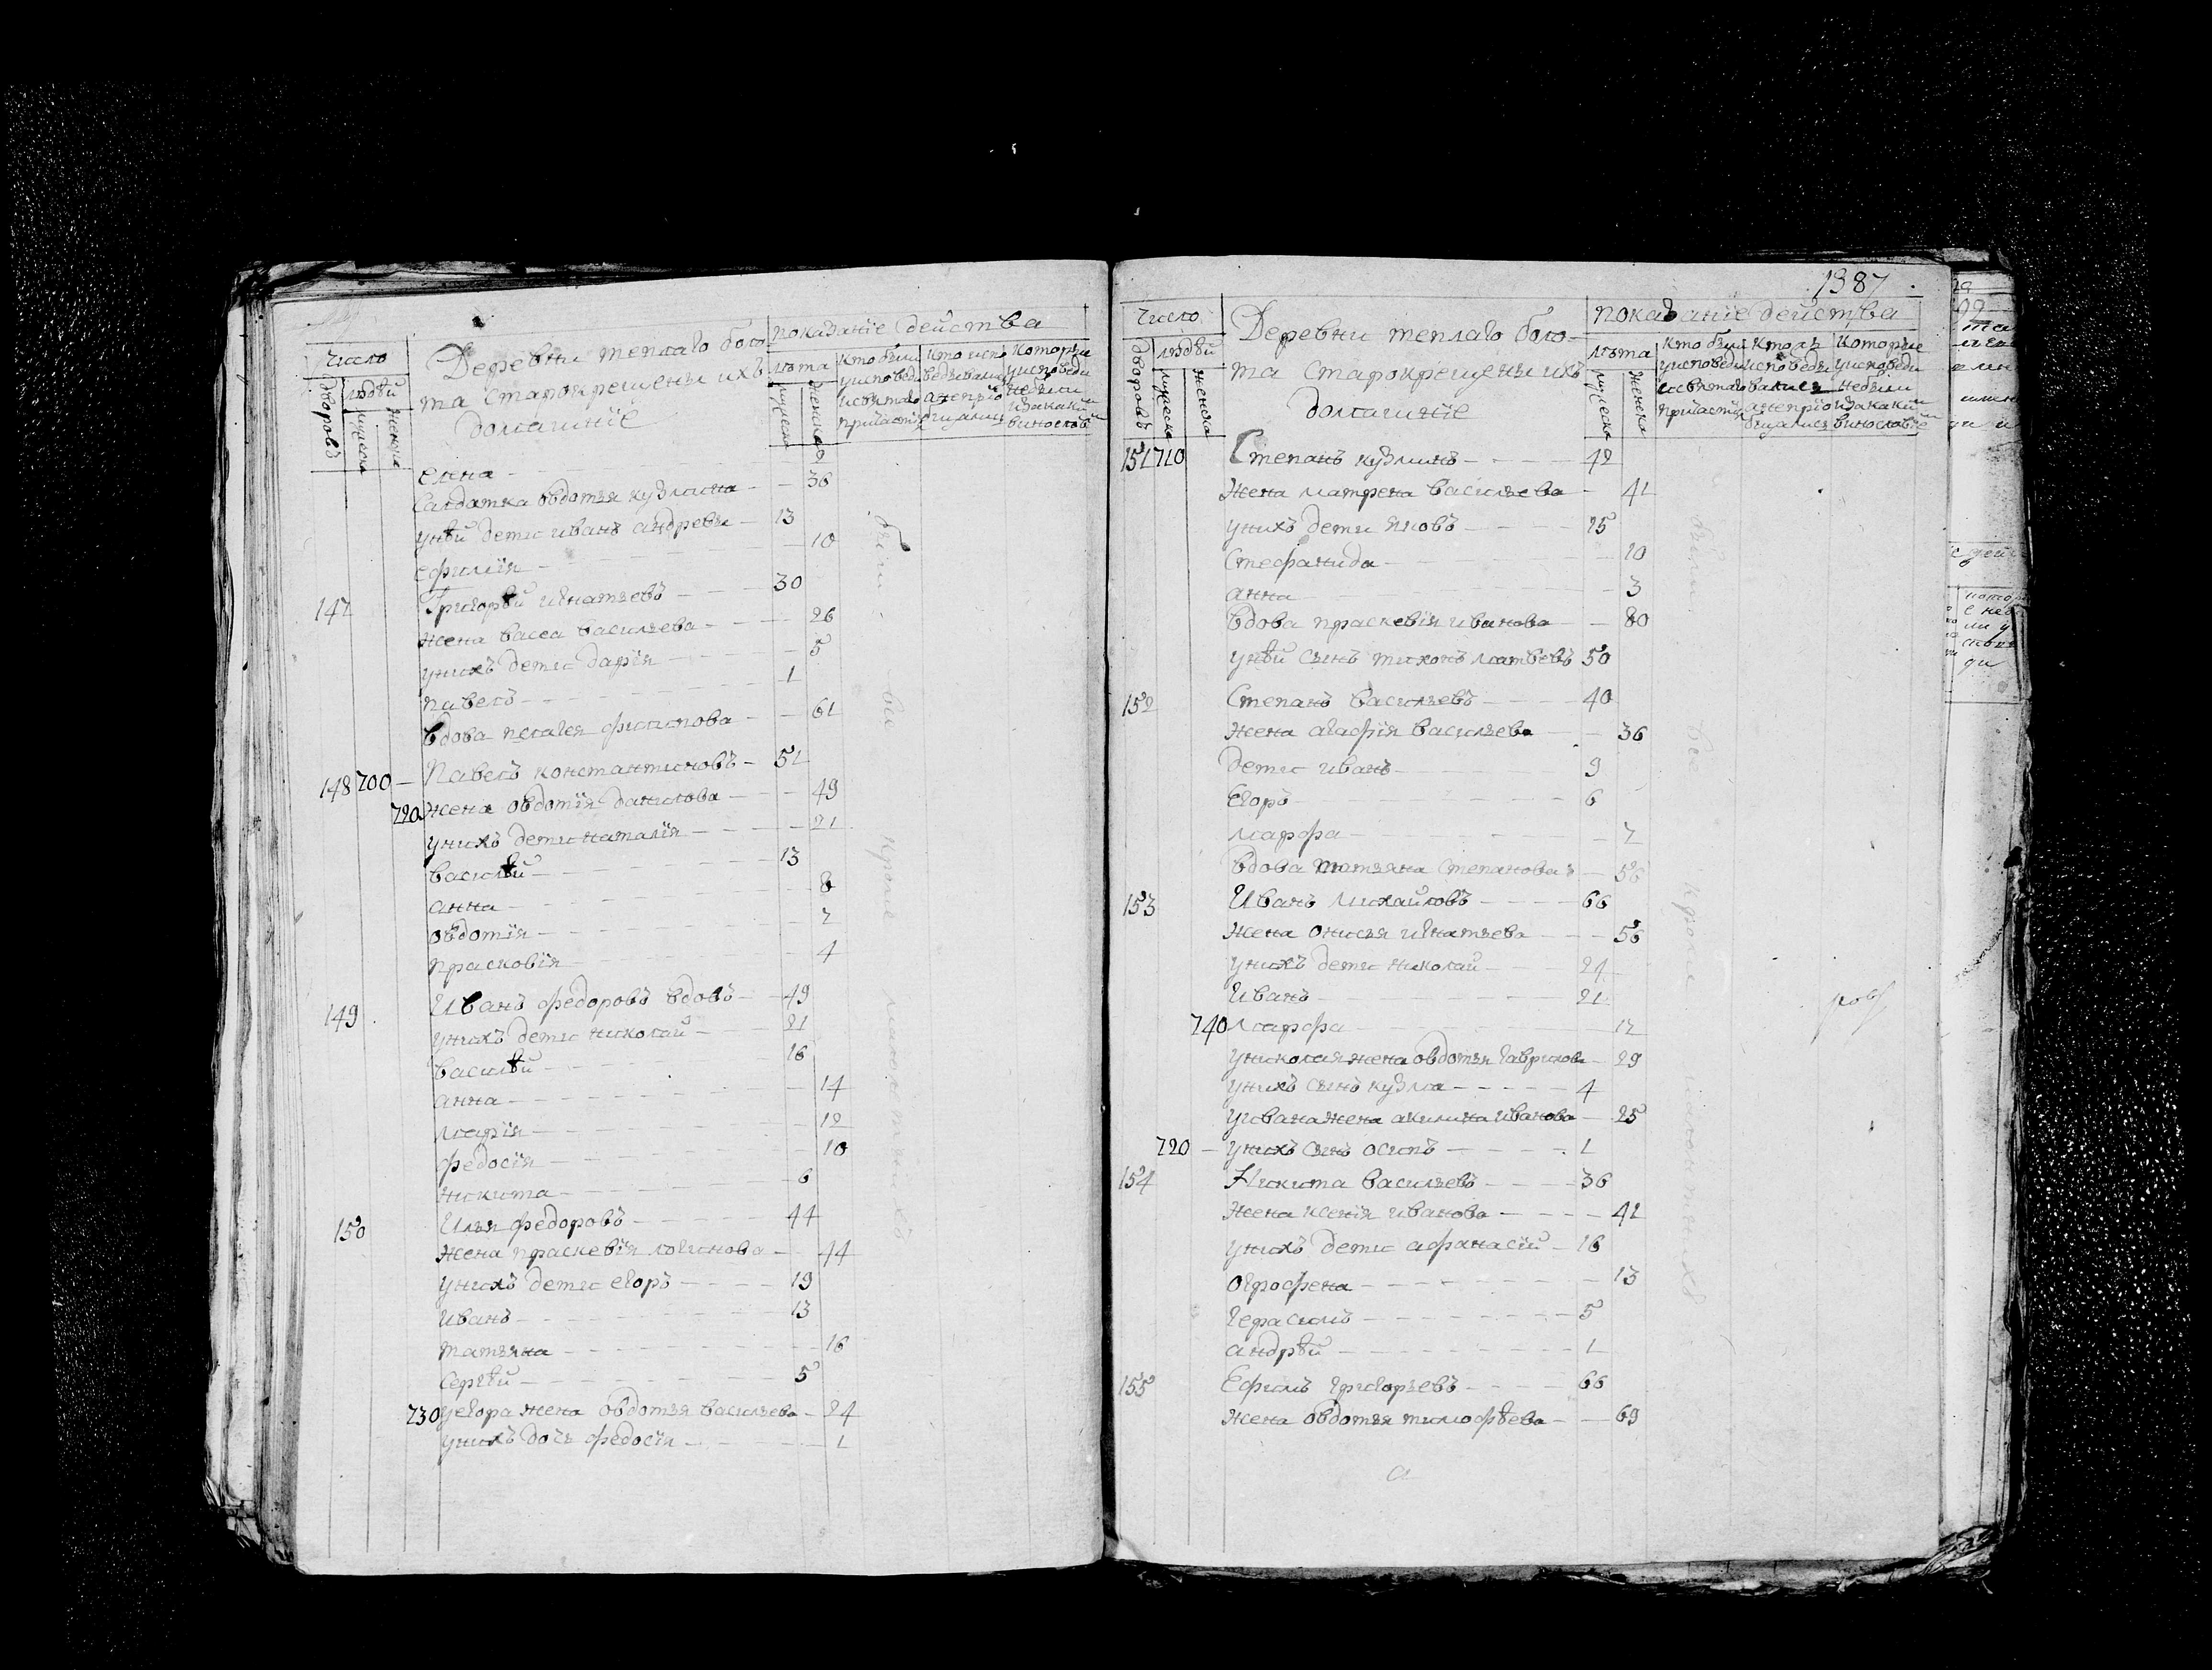 Число
Деревни теплаго боло
показанїе действа
дворовъ
людѣй
мужеска
женска
та старокрещены ихъ
домашнїе
лѣта
мужеска
женска
кто были
уисповеди
исвятаго
причастїя
кто испо
ведывалис
анеприо
бщались
которые
уисповеди
небыли
изакаким
винословїем
елена
Салдатка овдотья кузмина - - 36
унѣй дети иванъ андревъ - 13
ефимия - - 10
147 Григорѣй игнатьевъ - - 30
жена васса васильева - - 26
унихъ дети дарїя - - 5
павелъ - - 1
вдова пелагея филипова - - 61
148 700 - Павелъ константиновъ - 51
720 жена овдотїя данилова - - 49
унихъ дети наталїя - - 21
василѣй - - 13
анна - - 8
овдотїя - - 7
прасковїя - - 4
149 Иванъ федоровъ вдовъ - 49
унихъ дети николай - 21
василѣй - - 16
анна - - 14
марїя - - 12
федосїя - - 10
никита - - 6
150 Илья федоровъ - - 44
жена праскевїя логинова - - 44
унихъ дети егоръ - - 19
иванъ - - 13
татьяна - - 16
сергѣй - - 5
730 уегора жена овдотья васильева - 24
унихъ дочь федосїя - - 1
были - все кроме малолетныхъ
1387
Число
Деревни теплаго боло-
показанїе действа
дворовъ
людѣй
мужеска
женска
та старокрещены ихъ
домашнїе
лѣта
мужеска
женска
кто были
уисповеди
исвятаго
причастїя
уисповеди
анеприо
бщались
которые
уисповеди
небыли
изакаким
винословїем
151 710 Степанъ кузминъ - - 42
жена матрена васильева - 41
унихъ дети яковъ - - 15
стефанида - - 10
анна - - 3
вдова праскевїя иванова - - 80
унѣй сынъ тихонъ матвѣевъ 50
152 Степанъ васильевъ - - 40
жена агафїя васильева - - 36
дети иванъ - - 9
егоръ - - 6
марфа - - 7
вдова татьяна степанова - 56
153 Иванъ михайловъ - - 66
жена онисья игнатьева - - 56
унихъ дети николай - - 24
иванъ - - 21
740 марфа - - 12
униколая жена овдотья гаврилова - 29
унихъ сынъ кузма - - 4
уивана жена акилина иванова - 25
720 - унихъ сынъ осипъ - - 1
154 Никита васильевъ - - 36
жена ксенїя иванова - - 41
унихъ дети афанасїй - 16
огрофена - - 13
герасимъ - - 5
андрѣй - - 1
155 Ефимъ григорьевъ - - 66
жена овдотья тимофѣева - - 69
были все кроме малолетныхъ